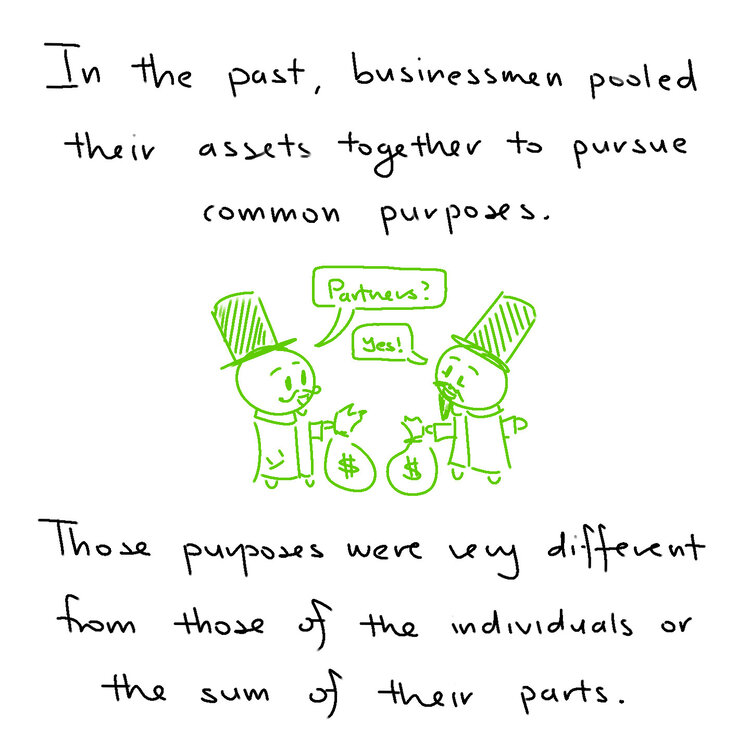 In the past, businessmen pooled
their assets together to pursue
common purposes.
Partners?
Yes!
$
$
Those purposes were very different
from those of the individuals or
the sum of their parts.